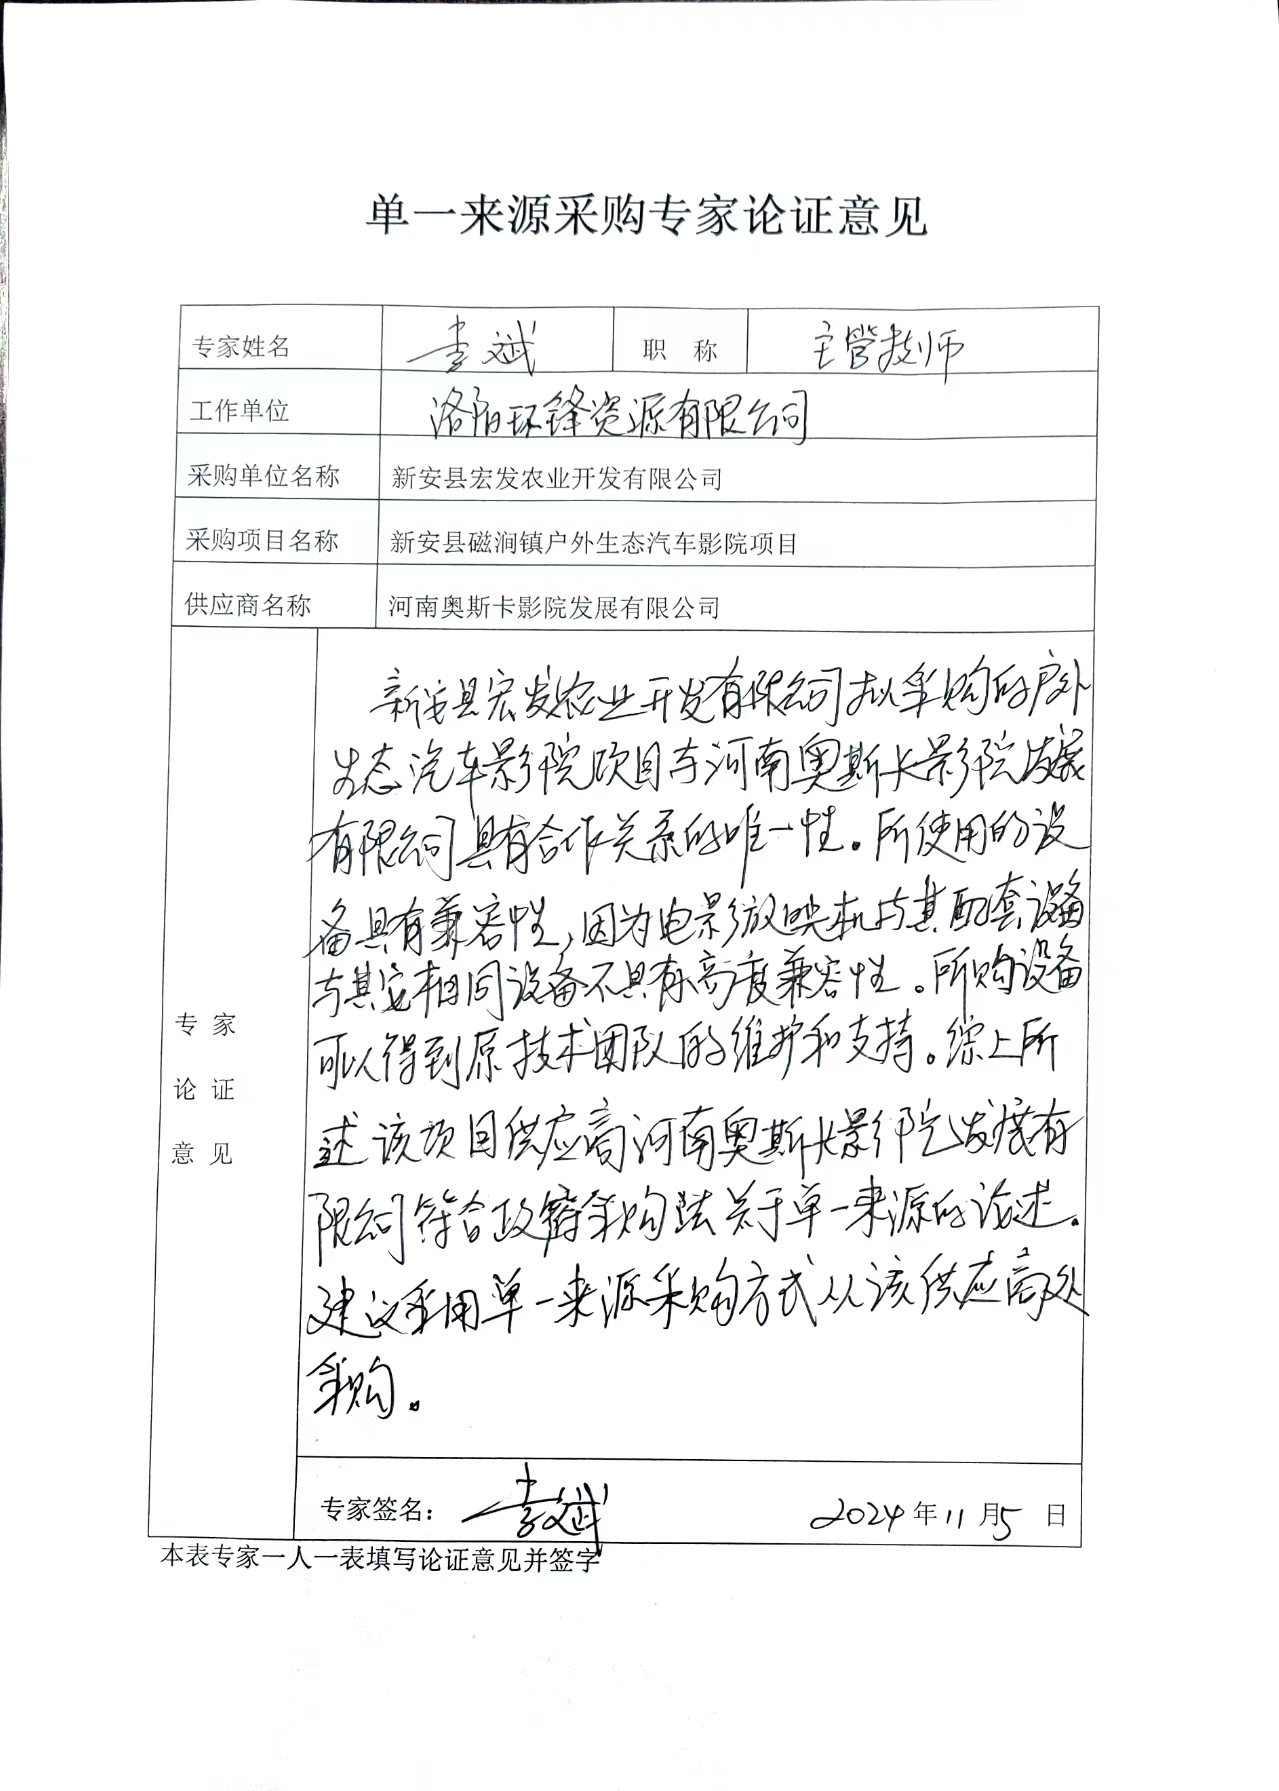 单一来源采购专家论证意见
专家姓名 李斌 职 称 主管技师
工作单位 洛阳环锋资源有限公司
采购单位名称 新安县宏发农业开发有限公司
采购项目名称 新安县磁涧镇户外生态汽车影院项目
供应商名称 河南奥斯卡影院发展有限公司
新安县宏发农业开发有限公司拟采购的户外
生态汽车影院项目与河南奥斯卡影院发展
有限公司具有合作关系的唯一性。所使用的设
备具有兼容性,因为电影放映机与其配套设备
与其它相同设备不具有高度兼容性。所购设备
可以得到原技术团队的维护和支持。综上所
述该项目供应商河南奥斯卡影院发展有
限公司符合政府采购法关于单一来源的论述。
建议采用单一来源采购方式从该供应商处
采购。
专 家
论 证
意 见
专家签名: 李斌 2024年11月5日
本表专家一人一表填写论证意见并签字